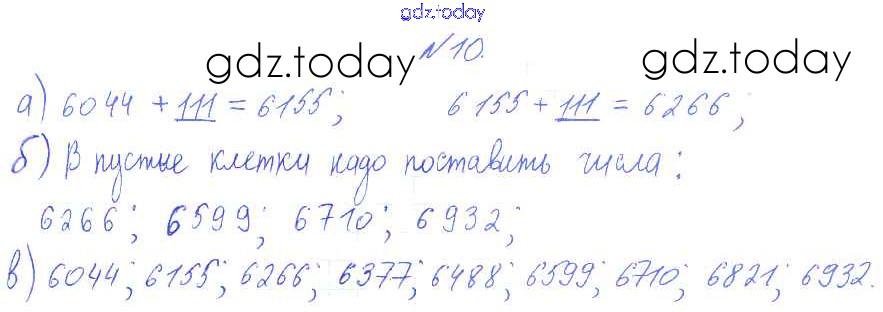 gdz.today
№10.
gdz.today gdz.today
а) 6044 + 111 = 6155; 6155 + 111 = 6266;
б) В пустые клетки надо поставить числа:
6266; 6599; 6710; 6932;
в) 6044; 6155; 6266; 6377; 6488; 6599; 6710; 6821; 6932.